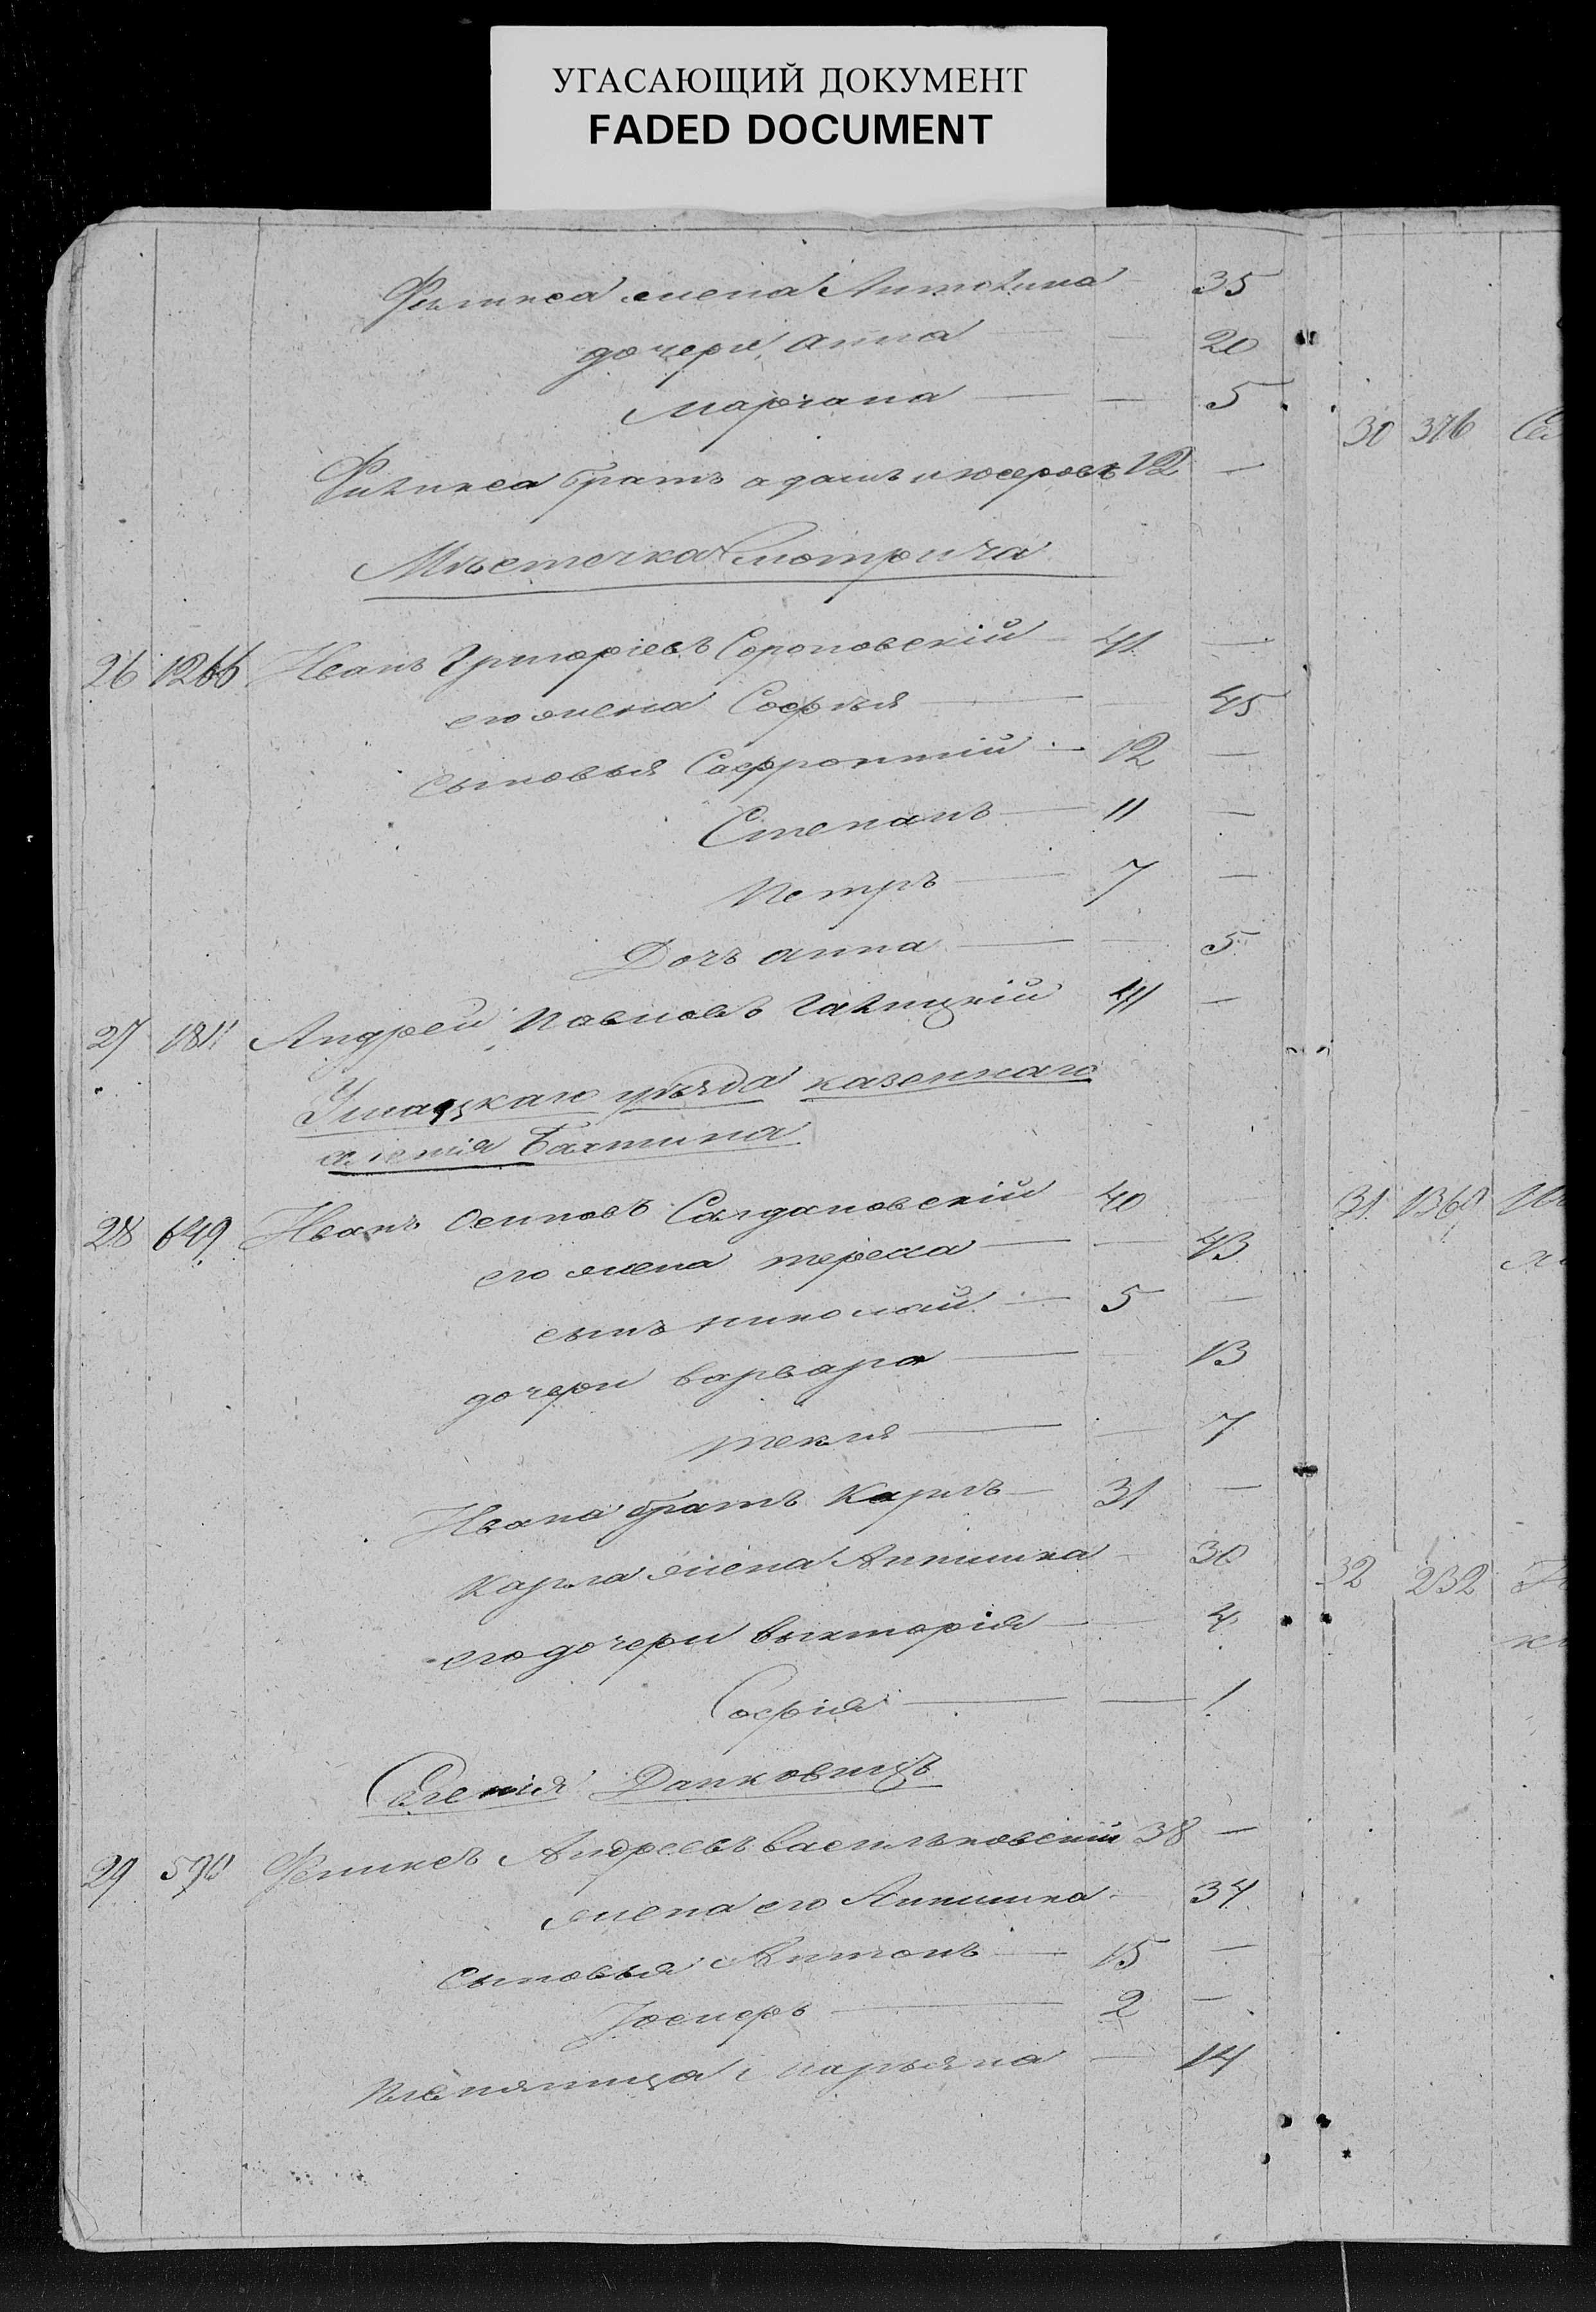 УГАСАЮЩИЙ ДОКУМЕНТ
FADED DOCUMENT
Филикса жена Антонина 35
дочери, анна — — 20
Марiана — — 5
30 376
Филикса братъ адамъ 12 —
Мѣстечка Смотрича
26 1266 Иванъ Григорiевъ Сороповскiй 41 —
его жена Софья — — 45
сыновья Сафронтiй — 12 —
Степанъ — 11 —
Петръ — 7 —
Дочь анна — — 5
27 1811 Андрей Павловъ Галицкiй 41 —
Ушацкаго уѣзда казеннаго
селенiя Бахтина
28 649 Иванъ Осиповъ Салдановскiй 40 —
31 1360
его жена тереса — — 43
сынъ николай — 5 —
дочери варвара — — 13
текля — — 7
Ивана братъ Карлъ — 31 —
Карла жена Аннишка — 30
32 232
его дочери викторiя — — 4
Софiя — — 1
Селенiя Данковицъ
29 590 Феликсъ Андреевъ васильковскiй 38 —
жена его Аннишка — 34
сыновья Антонъ — 15 —
Iосифъ — 2 —
племянница Марьяна — 14